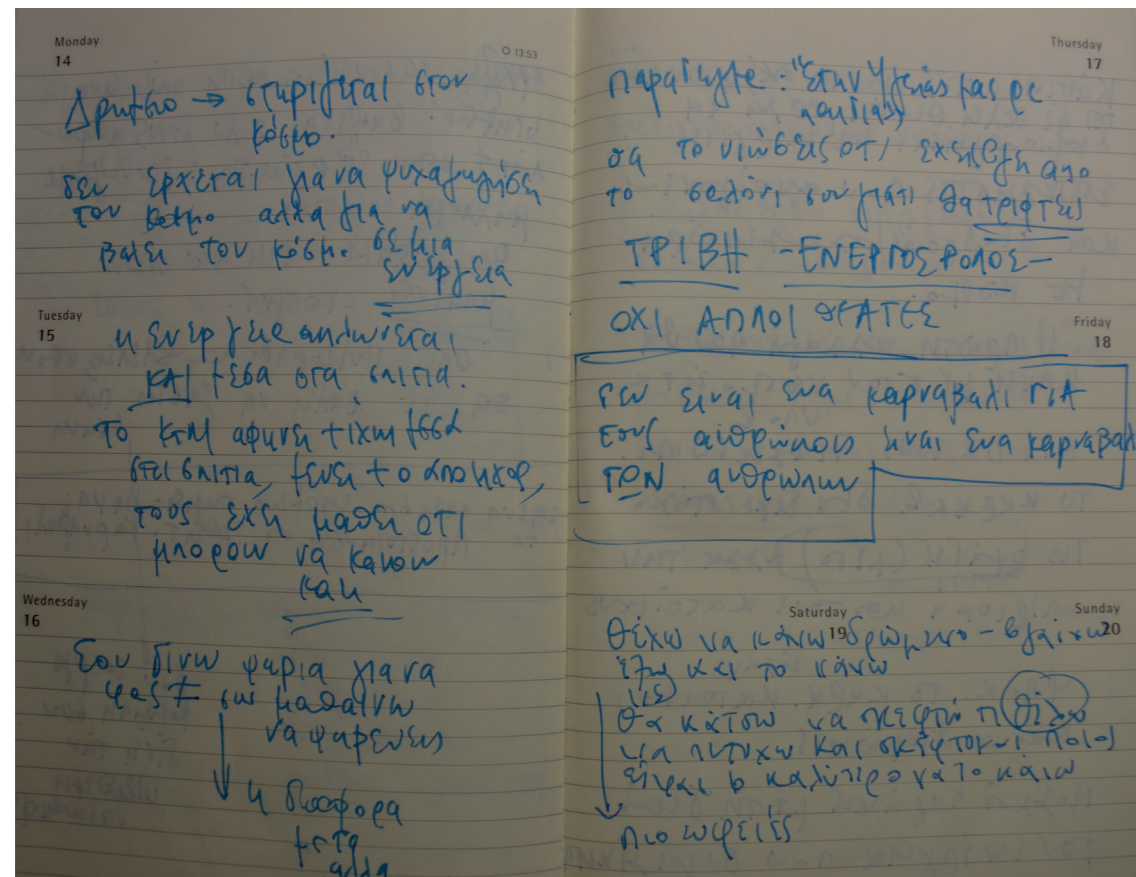 Monday
14
13:53
Δρώμενο → στηρίζεται στον
κόσμο.
δεν έρχεται για να ψυχαγωγήσει
τον κόσμο αλλα για να
βαλει τον κόσμο σε μια
ενέργεια
Tuesday
15
η ενεργεια απλωνεται
ΚΑΙ μεσα στα σπιτια.
το αφηνει μεσα
στα σπιτια, μενει + ο αποηχος,
τους εχει μαθει οτι
μπορουν να κανουν
κατι
Wednesday
16
Σου δινω ψαρια για να
φας ≠ σου μαθαινω
να ψαρευεις
η διαφορα
με τα
αλλα
Thursday
17
παραδειγμα: "Στην υγειάς μας ρε
παιδιά"
θα το νιώσεις οτι έχει βγη απο
το σαλόνι σου γιατι θα τριφτεις
ΤΡΙΒΗ - ΕΝΕΡΓΟΣ ΡΟΛΟΣ -
ΟΧΙ ΑΠΛΟΙ ΘΕΑΤΕΣ
Friday
18
δεν ειναι ενα καρναβαλι ΓΙΑ
τους ανθρώπους ειναι ενα καρναβαλι
ΤΩΝ ανθρωπων
Saturday
19
Sunday
20
θέλω να κάνω δρώμενο - βγαίνω
έξω και το κάνω
θα κάτσω να σκεφτώ τι θέλω
να πετυχω και σκέφτομαι ποιος
είναι ο καλύτερο να το κάνω
πιο